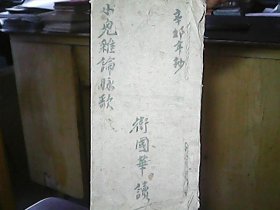 辛卯年抄
小兒雜論脉歌
衛國華讀